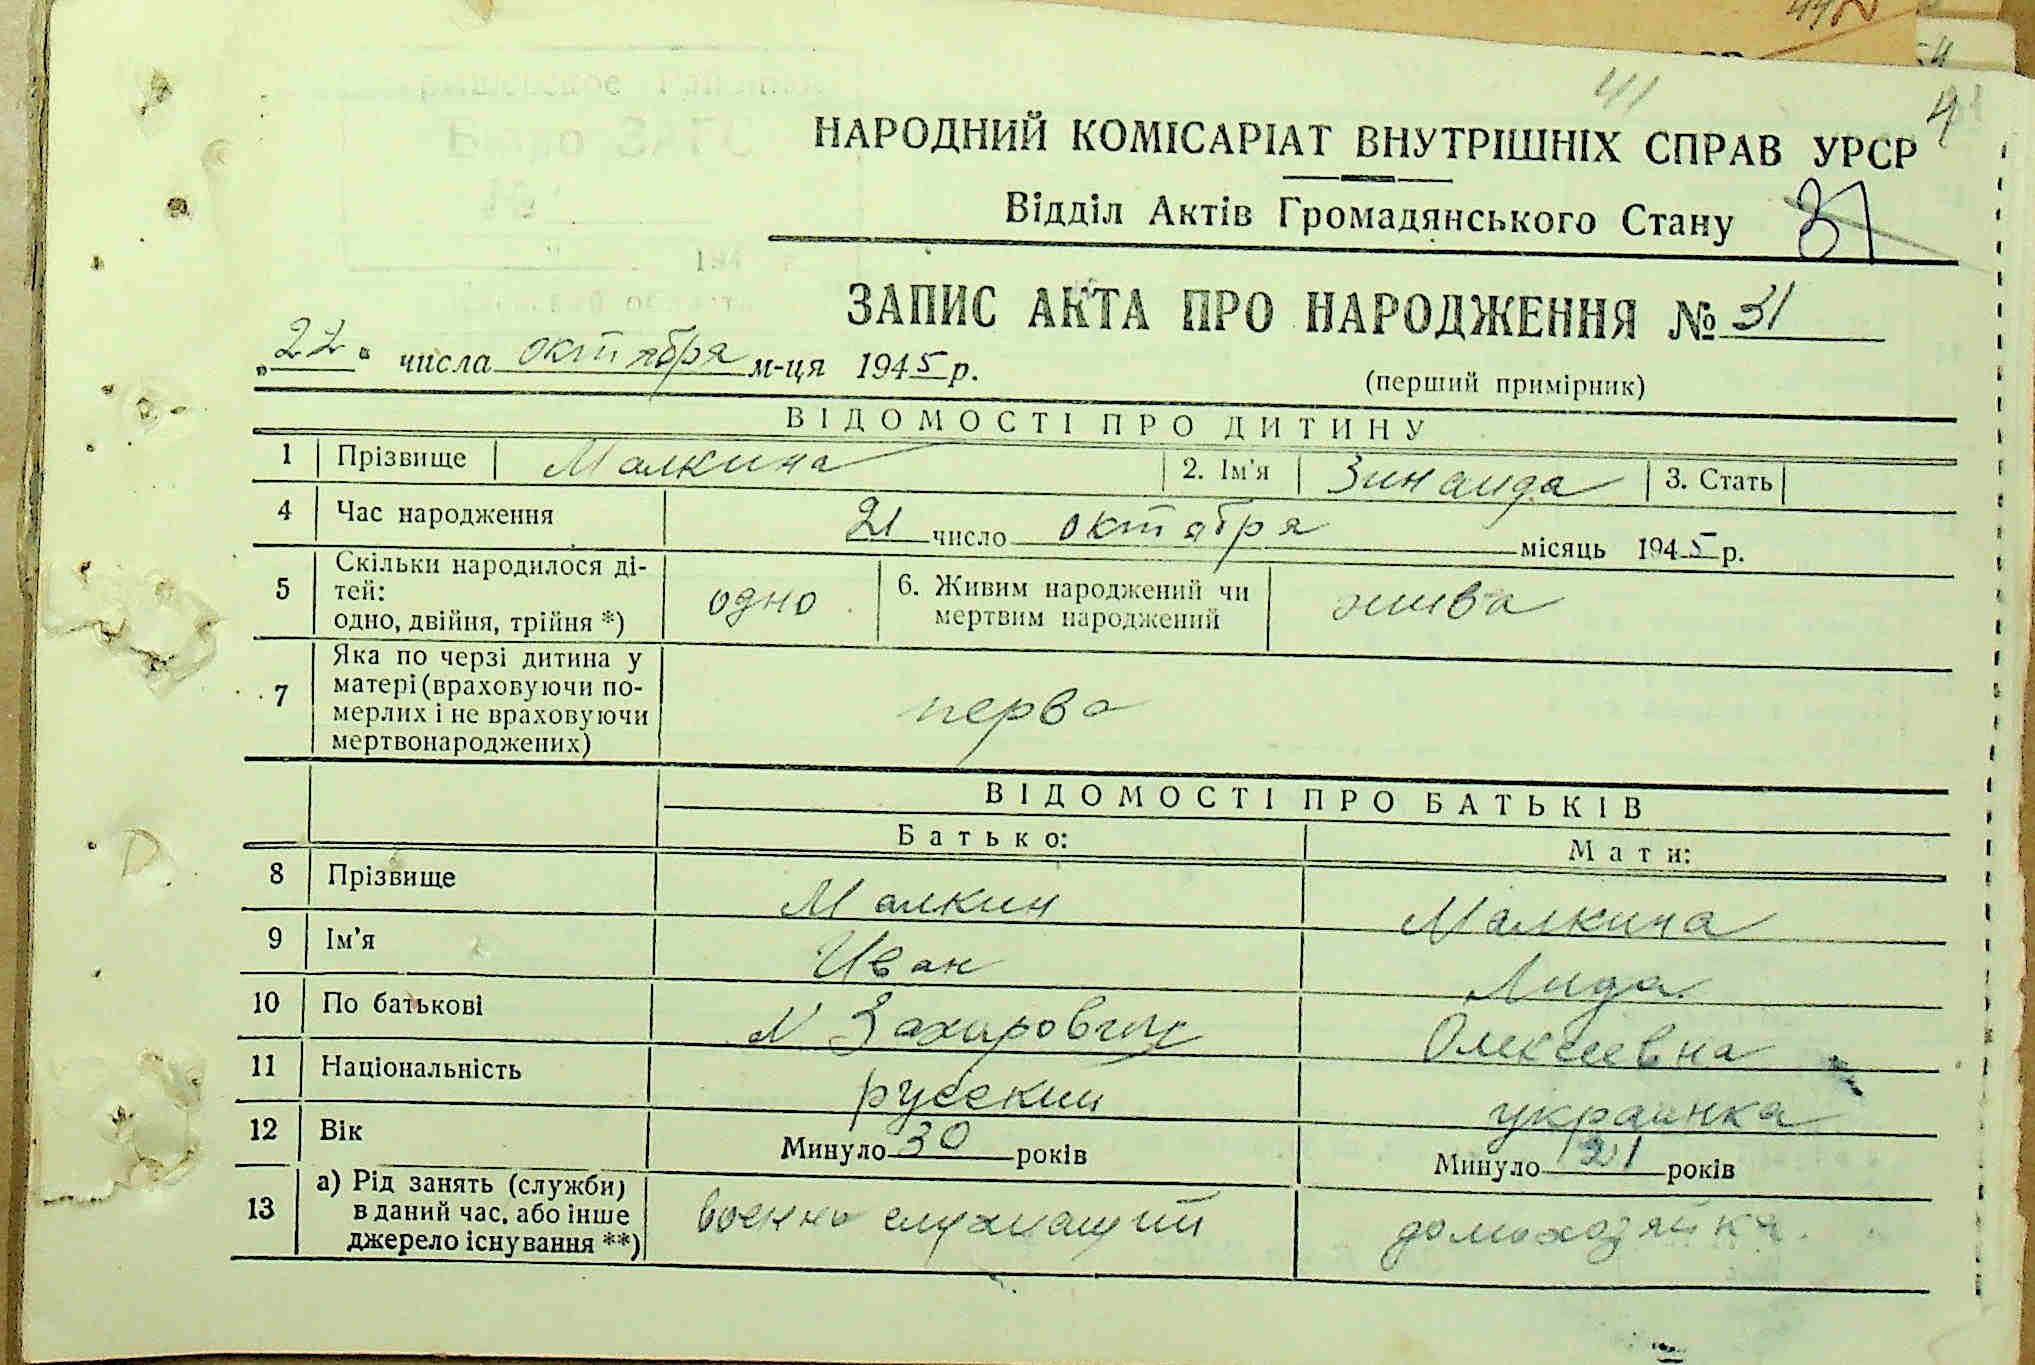 41
НАРОДНИЙ КОМІСАРІАТ ВНУТРІШНІХ СПРАВ УРСР
Відділ Актів Громадянського Стану 31
ЗАПИС АКТА ПРО НАРОДЖЕННЯ № 31
„22" числа октября м-ця 1945 р.
(перший примірник)
ВІДОМОСТІ ПРО ДИТИНУ
1 Прізвище Малкина 2. Ім'я Зинаида 3. Стать
4 Час народження 21 число октября місяць 1945 р.
5 Скільки народилося ді-
тей:
одно, двійня, трійня *) одно 6. Живим народжений чи
мертвим народжений жива
7 Яка по черзі дитина у
матері (враховуючи по-
мерлих і не враховуючи
мертвонароджених) перва
ВІДОМОСТІ ПРО БАТЬКІВ
Батько: Мати:
8 Прізвище Малкин Малкина
9 Ім'я Иван Лида
10 По батькові Захарович Олексеевна
11 Національність русский украинка
12 Вік Минуло 30 років Минуло 21 років
13 а) Рід занять (служби)
в даний час, або інше
джерело існування **) военнослужащий домохозяйка